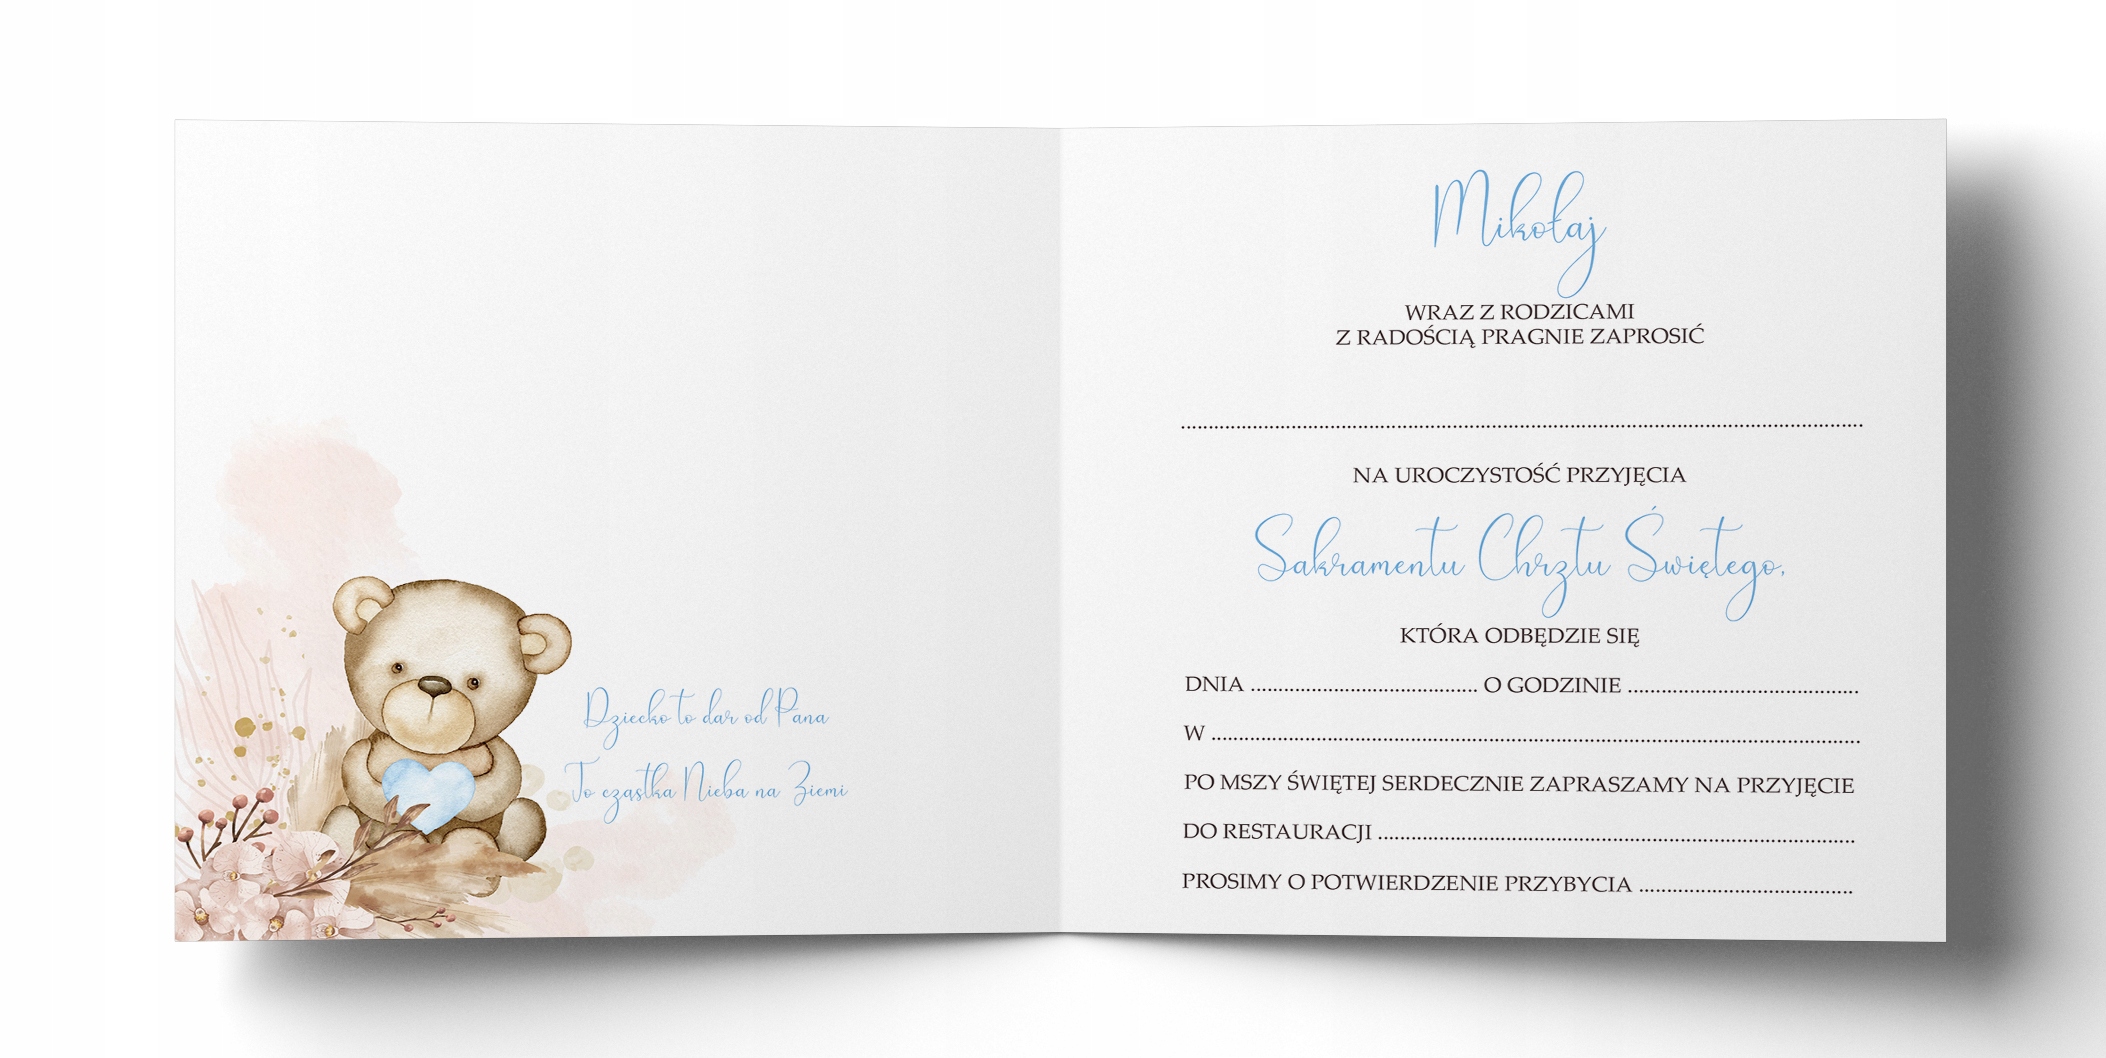 Dziecko to dar od Pana
To cząstka Nieba na Ziemi
Mikołaj
WRAZ Z RODZICAMI
Z RADOŚCIĄ PRAGNIE ZAPROSIĆ
................................................................
NA UROCZYSTOŚĆ PRZYJĘCIA
Sakramentu Chrztu Świętego,
KTÓRA ODBĘDZIE SIĘ
DNIA .......................... O GODZINIE ..........................
W ................................................................
PO MSZY ŚWIĘTEJ SERDECZNIE ZAPRASZAMY NA PRZYJĘCIE
DO RESTAURACJI ................................................
PROSIMY O POTWIERDZENIE PRZYBYCIA ........................